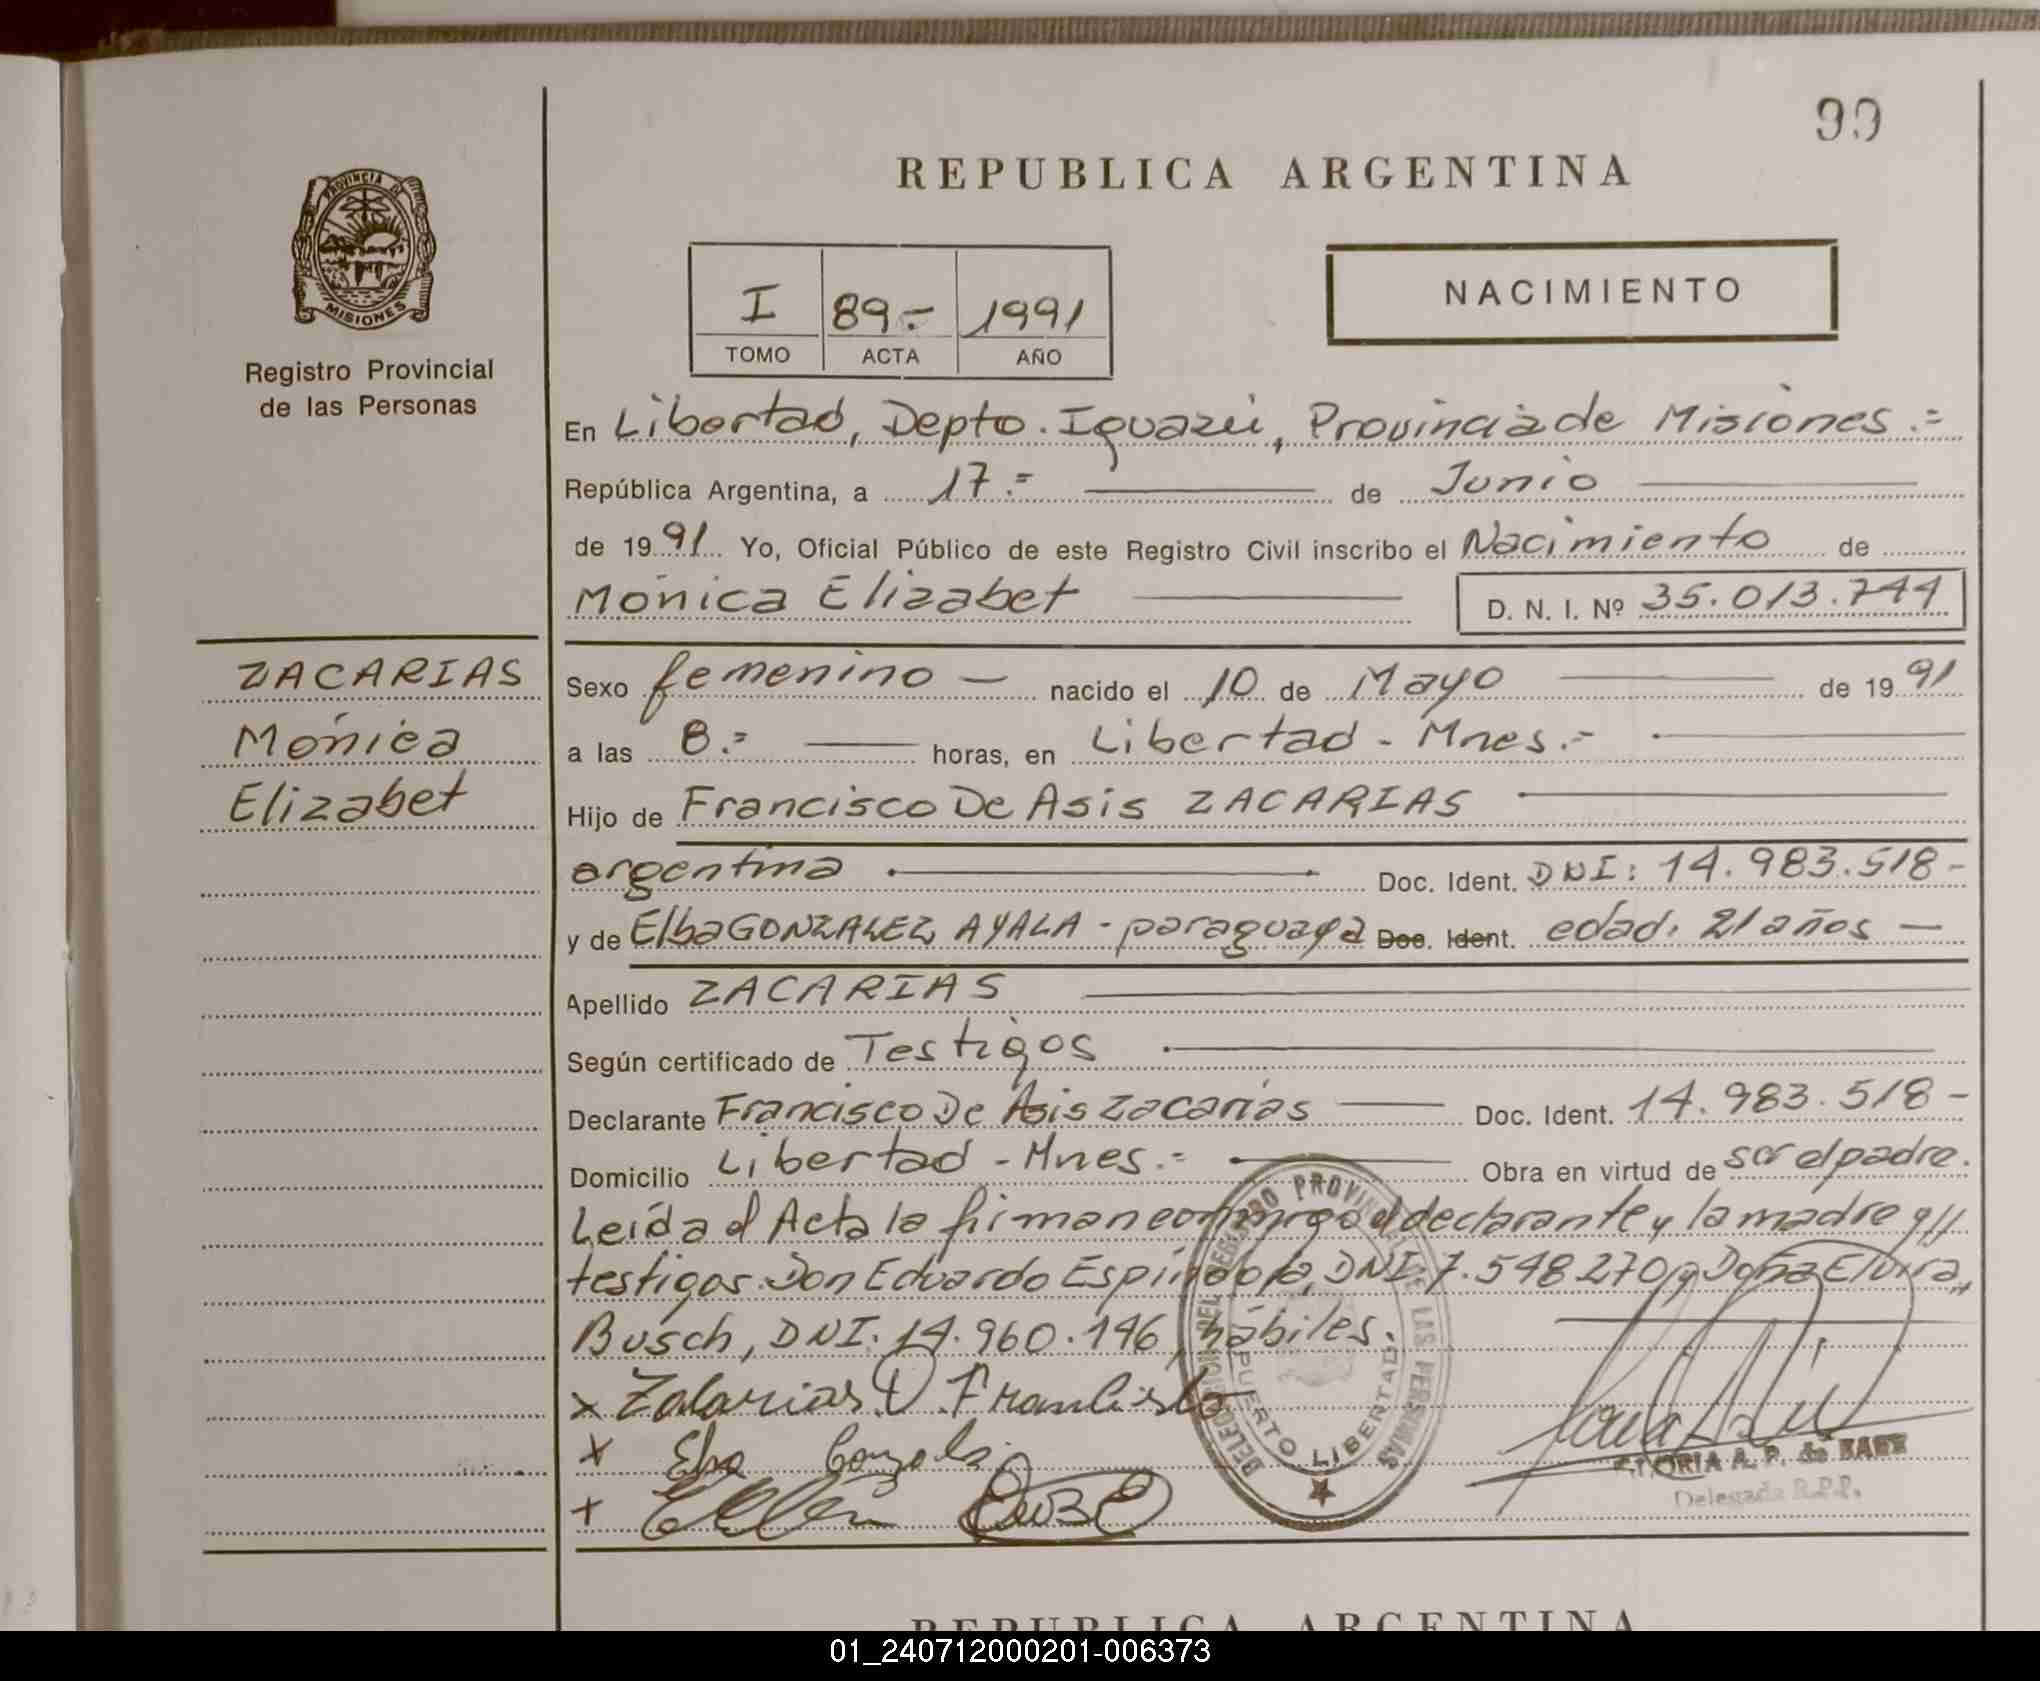 99
REPUBLICA ARGENTINA
PROVINCIA DE
MISIONES
Registro Provincial
de las Personas
I 89.- 1991
TOMO ACTA AÑO
NACIMIENTO
En Libertad, Depto. Iguazú, Provincia de Misiones.=
República Argentina, a 17.= de Junio
de 1991 Yo, Oficial Público de este Registro Civil inscribo el Nacimiento de
Mónica Elizabet D. N. I. Nº 35.013.744
ZACARIAS
Mónica
Elizabet
Sexo femenino — nacido el 10 de Mayo de 1991
a las 8.= horas, en Libertad - Mnes.=
Hijo de Francisco De Asis ZACARIAS
argentina Doc. Ident. DNI: 14.983.518-
y de Elba GONZALEZ AYALA - paraguaya Doc. Ident. edad. 21 años —
Apellido ZACARIAS
Según certificado de Testigos
Declarante Francisco De Asis Zacarias Doc. Ident. 14.983.518-
Domicilio Libertad - Mnes.= Obra en virtud de ser el padre.
Leída el Acta la firman conmigo el declarante y la madre y ll
testigos Don Eduardo Espíndola, DNI 7.548270 y Doña Elvira
Busch, DNI. 14.960.146, hábiles.
x Zacarias D. Francisco
x Elba Gonzalez
+
DELEGACION DEL REGISTRO PROVINCIAL DE LAS PERSONAS
PUERTO LIBERTAD
GLORIA A. P. de BAEZ
Delegada R.P.P.
REPUBLICA ARGENTINA
01_240712000201-006373